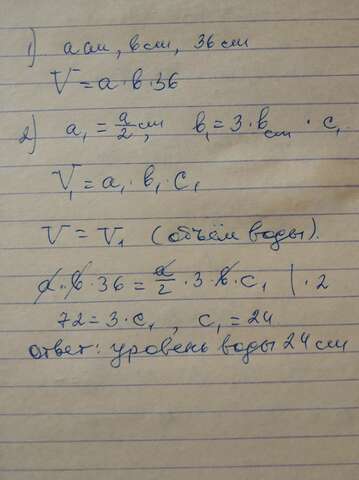 1) a см, в см, 36 см
V = a · в · 36
2) a₁ = a/2 см, в₁ = 3 · в см · c₁
V₁ = a₁ · в₁ · c₁
V = V₁ (объём воды).
a · в · 36 = a/2 · 3 · в · c₁ | · 2
72 = 3 · c₁, c₁ = 24
ответ: уровень воды 24 см